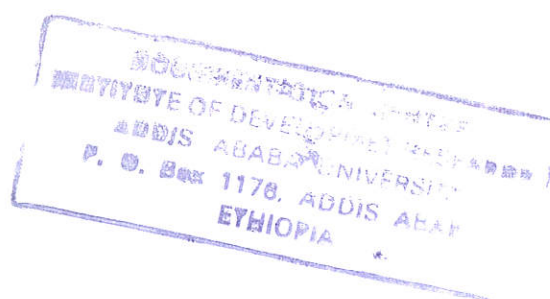 DOCUMENTATION CENTER
INSTITUTE OF DEVELOPMENT RESEARCH
ADDIS ABABA UNIVERSITY
P. O. Box 1176, ADDIS ABAB
ETHIOPIA